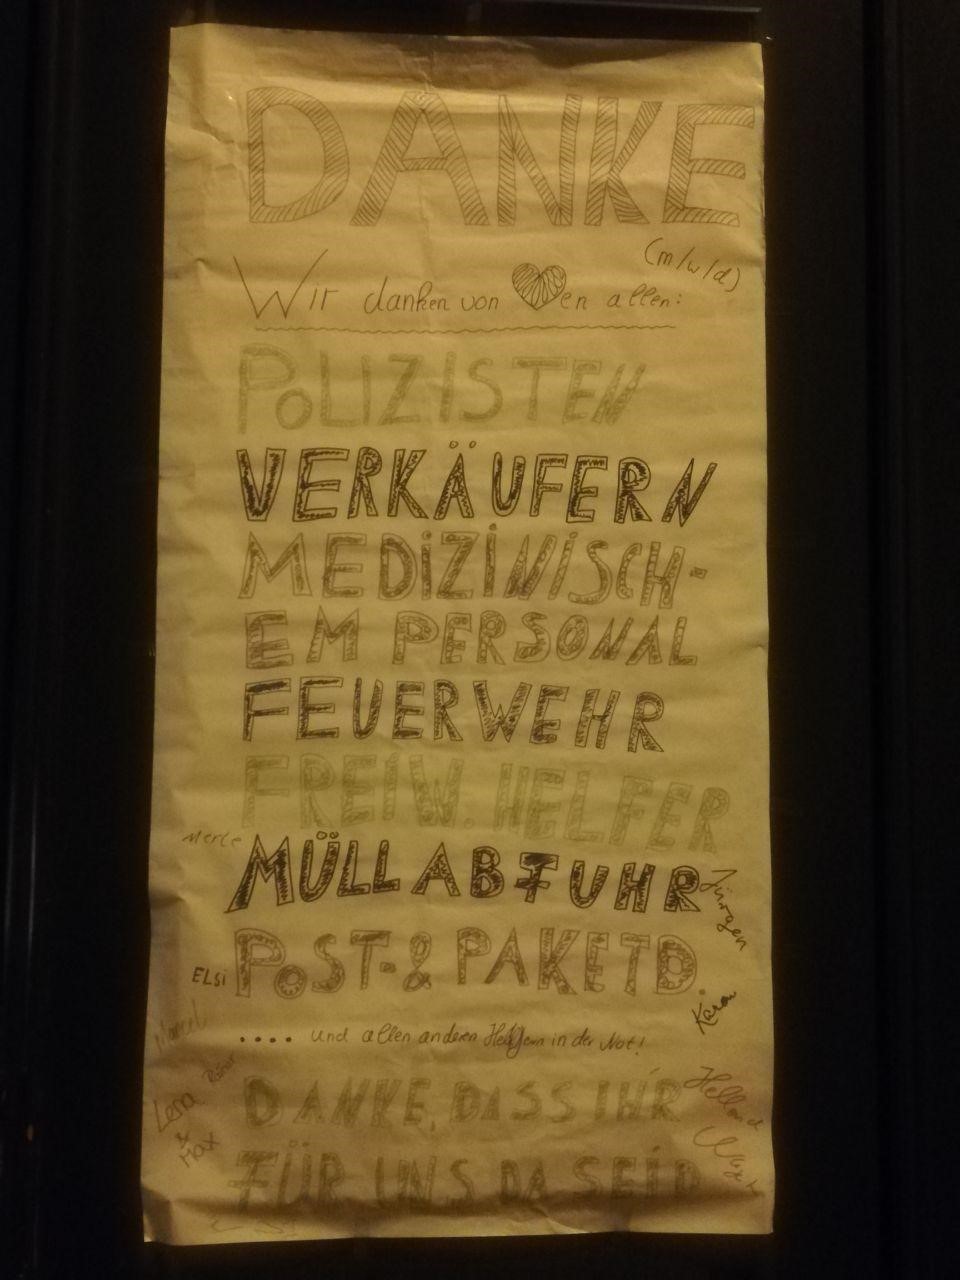 DANKE
(m/w/d)
Wir danken von ♥en allen:
POLIZISTEN
VERKÄUFERN
MEDIZINISCH-
EM PERSONAL
FEUERWEHR
FREIW. HELFER
Merle
MÜLLABFUHR
Jürgen
POST- & PAKETD.
ELSi
Karen
Marcel
.... und allen anderen Helfern in der Not!
Rainer
DANKE, DASS IHR
Lena
& Max
FÜR UNS DA SEID